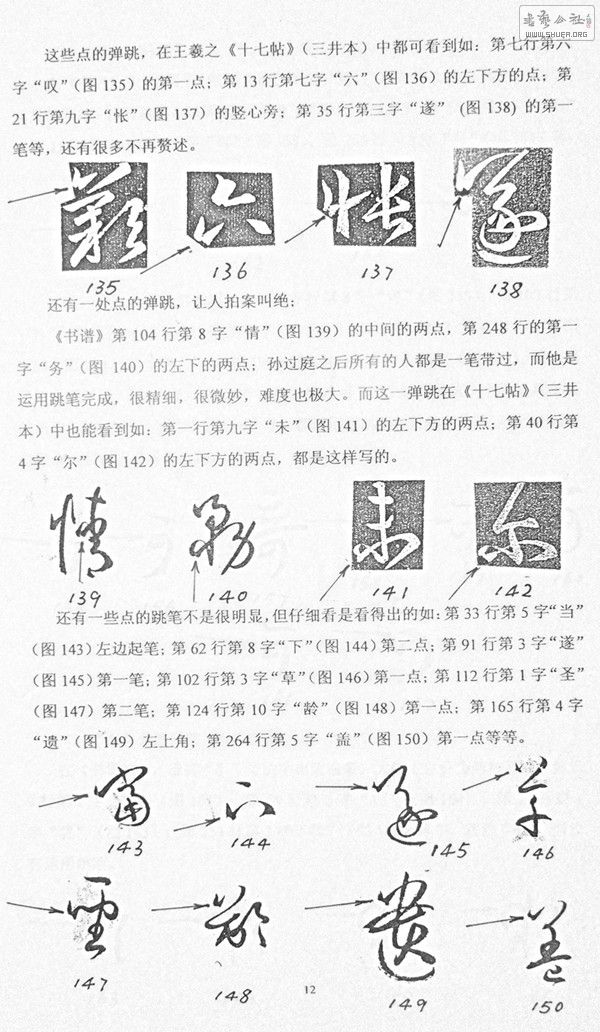 書法公社
WWW.SHUFA.ORG
这些点的弹跳，在王羲之《十七帖》（三井本）中都可看到如：第七行第六
字“叹”（图 135）的第一点；第 13 行第七字“六”（图 136）的左下方的点；第
21 行第九字“怅”（图 137）的竖心旁；第 35 行第三字“遂”（图 138) 的第一
笔等，还有很多不再赘述。
135 136 137 138
还有一处点的弹跳，让人拍案叫绝：
《书谱》第 104 行第 8 字“情”（图 139）的中间的两点，第 248 行的第一
字“务”（图 140）的左下的两点；孙过庭之后所有的人都是一笔带过，而他是
运用跳笔完成，很精细，很微妙，难度也极大。而这一弹跳在《十七帖》（三井
本）中也能看到如：第一行第九字“未”（图 141）的左下方的两点；第 40 行第
4 字“尔”（图 142）的左下方的两点，都是这样写的。
139 140 141 142
还有一些点的跳笔不是很明显，但仔细看是看得出的如：第 33 行第 5 字“当”
（图 143）左边起笔；第 62 行第 8 字“下”（图 144）第二点；第 91 行第 3 字“遂”
（图 145）第一笔；第 102 行第 3 字“草”（图 146）第一点；第 112 行第 1 字“圣”
（图 147）第二笔；第 124 行第 10 字“龄”（图 148）第一点；第 165 行第 4 字
“遗”（图 149）左上角；第 264 行第 5 字“盖”（图 150）第一点等等。
143 144 145 146
147 148 149 150
12